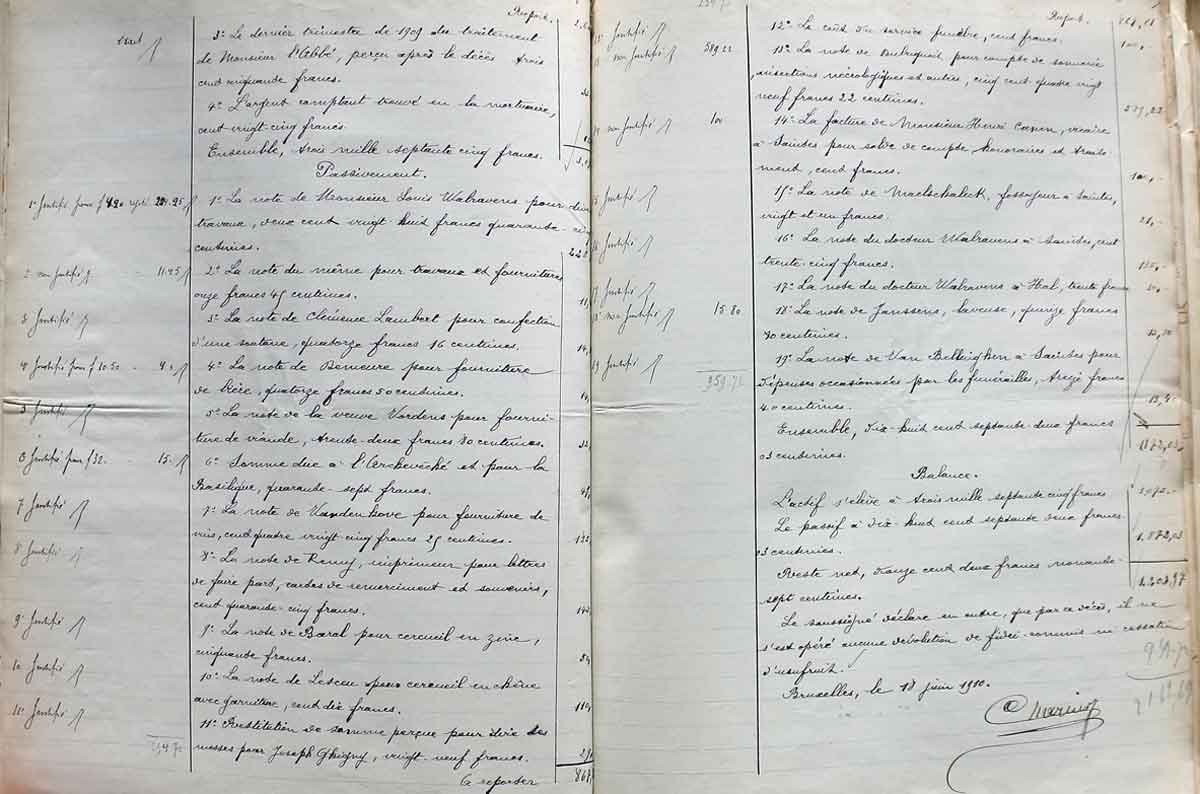 Report.
3° Le dernier trimestre de 1909 du traitement
de Monsieur l'Abbé, perçu après le décès trois
cent cinquante francs.
4° L'argent comptant trouvé en la mortuaire,
cent vingt-cinq francs.
Ensemble, trois mille septante cinq francs.
Passivement.
1° justifié pour f
1° La note de Monsieur Louis Walravens pour
travaux, deux cent vingt huit francs quarante-cinq
centimes.
2° non justifié 11.45
2° La note du même pour travaux et fournitures
onze francs 45 centimes.
3 justifié
3° La note de Lambert pour confection
d'une soutane, quatorze francs 16 centimes.
4° justifié pour f 10.50
4° La note de Demeure pour fourniture
de bière, quatorze francs 50 centimes.
5° justifié
5° La note de la veuve Vordens pour fourni-
ture de viande, trente-deux francs 80 centimes.
6 justifié pour f 32. 15.
6° Somme due à l'Archevêché et pour la
Basilique, quarante-sept francs.
7 justifié
7° La note de Vandenhove pour fourniture de
vins, cent quatre vingt cinq francs 25 centimes.
8° justifié
8° La note de Remy, imprimeur pour lettres
de faire part, cartes de remerciment et souvenirs,
cent quarante-cinq francs.
9° justifié
9° La note de Baral pour cercueil en zinc,
cinquante francs.
10 justifié
10° La note de Lescou pour cercueil en chêne
avec garniture, cent dix francs.
11° justifié
11° Restitution de somme perçue pour dire des
messes pour Joseph Ghigny, vingt-neuf francs.
à reporter 867,
Report.
12° justifié
12° Le coût du service funèbre, cent francs. 100,-
13 non justifié 589.22
13° La note de pour compte de
insertions nécrologiques et autres, cinq cent quatre vingt
neuf francs 22 centimes. 589,22
14 non justifié 100
14° La facture de Monsieur Henri vicaire
à Saintes pour solde de compte, honoraires et traite-
ment, cent francs. 100,-
15 justifié
15° La note de Maelschalck, fossoyeur à Saintes,
vingt et un francs. 21,-
16 justifié
16° La note du docteur Walravens à Saintes, cent
trente cinq francs. 135,-
17 justifié
17° La note du docteur Walravens à Hal, trente francs 30,-
18° non justifié 15.80
18° La note de Janssens, laveuse, quinze francs
80 centimes.
19 justifié
19° La note de Van Bellinghen à Saintes pour
dépenses occasionnées par les funérailles, treize francs
40 centimes. 13,40
959.72
Ensemble, dix-huit cent septante-deux francs
03 centimes. 1872,03
Balance.
L'actif s'élève à trois mille septante cinq francs 3,075.-
Le passif à dix-huit cent septante deux francs
03 centimes. 1.872,03
Reste net, douze cent deux francs nonante-
sept centimes. 1.202,97
Le soussigné déclare en outre, que par ce décès, il ne
s'est opéré aucune dévolution de fidéi-commis ni cessation
d'usufruit.
Bruxelles, le 18 juin 1910.